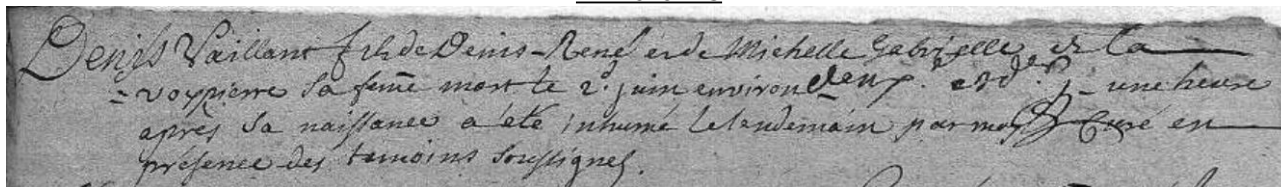 Denis Vaillant fils de Denis-René et de Michelle Gabrielle de la
-voypierre sa feme mort le 2.d juin environ une heure
après sa naissance a été inhumé le landemain par moy Curé en
présence des temoins soussignes.